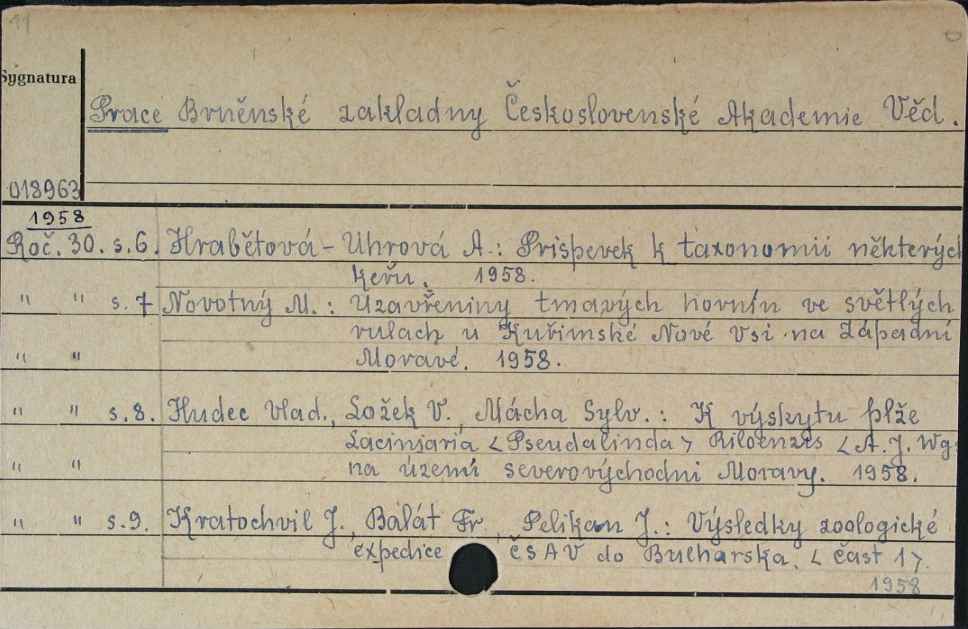 11
Sygnatura
Prace Brněnské zakladny Československé Akademie Věd.
018963
1958
Roč. 30. s. 6. Hrabětová-Uhrová A.: Prispevek k taxonomii některých
keřu. 1958.
" " s. 7 Novotný M.: Uzavřeniny tmavých hovnín ve světlých
rulach u Kuřimské Nové Vsi na Západní
" " Moravé. 1958.
" " s. 8. Hudec Vlad., Ložek V., Mácha Sylv.: K výskytu plže
Lacinjaria <Pseudalinda> Riloenzis <A. J. Wg.
" " na území severovýchodni Moravy. 1958.
" " s. 9. Kratochvil J., Balát Fr., Pelikan J.: Výsledky zoologické
expedice ČSAV do Bulharska. <část 1>.
1958